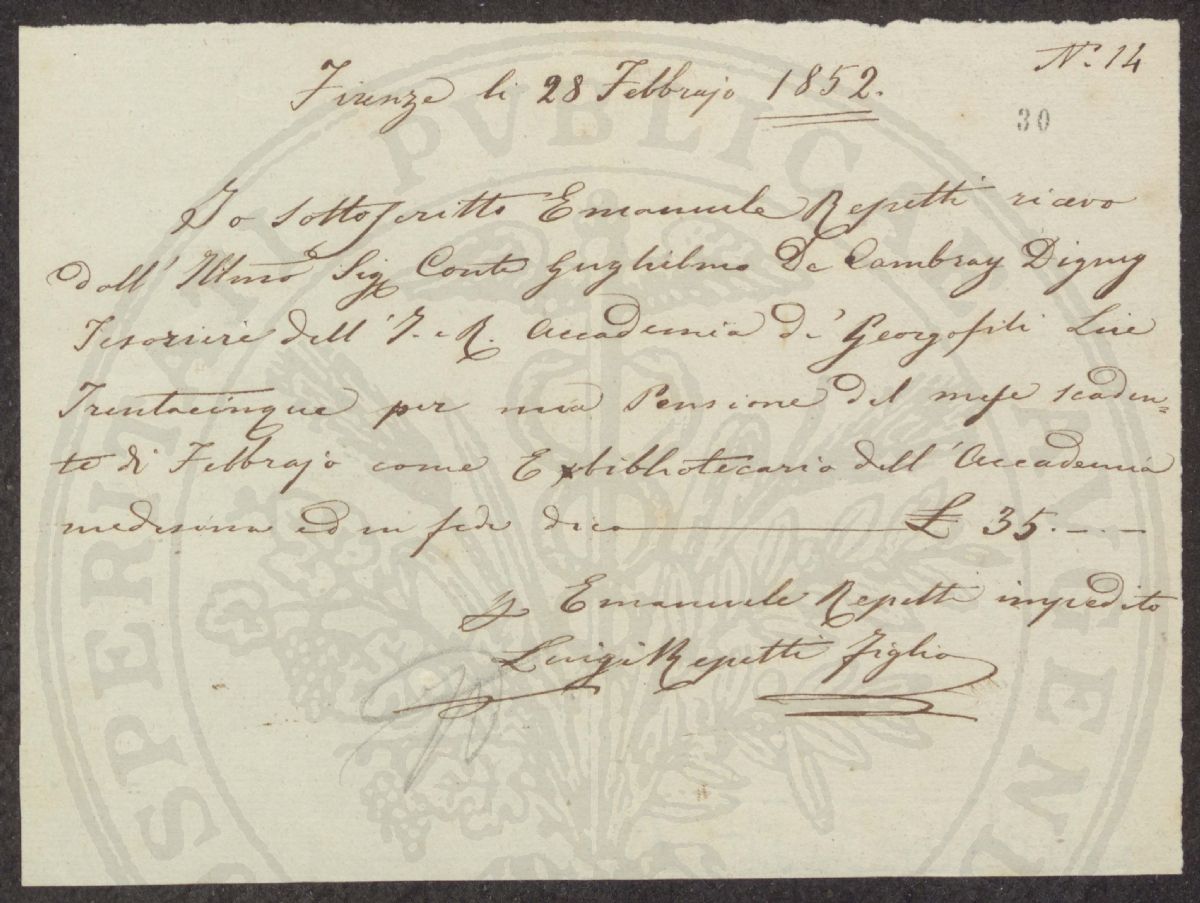 N.º 14
Firenze li 28 Febbrajo 1852.
30
Io sottoscritto Emanuele Repetti ricevo
dall' Illmo Sigr Conte Guglielmo De Cambray Digny
Tesoriere dell' I. e R. Accademia de' Georgofili Lire
Trentacinque per mia Pensione del mese scaden=
te di Febbrajo come Exbibliotecario dell' Accademia
medesima ed in fede dico £ 35.—.—
Emanuele Repetti impedito
Luigi Repetti figlio
PROSPERITATI PVBLICAE AVGENDAE